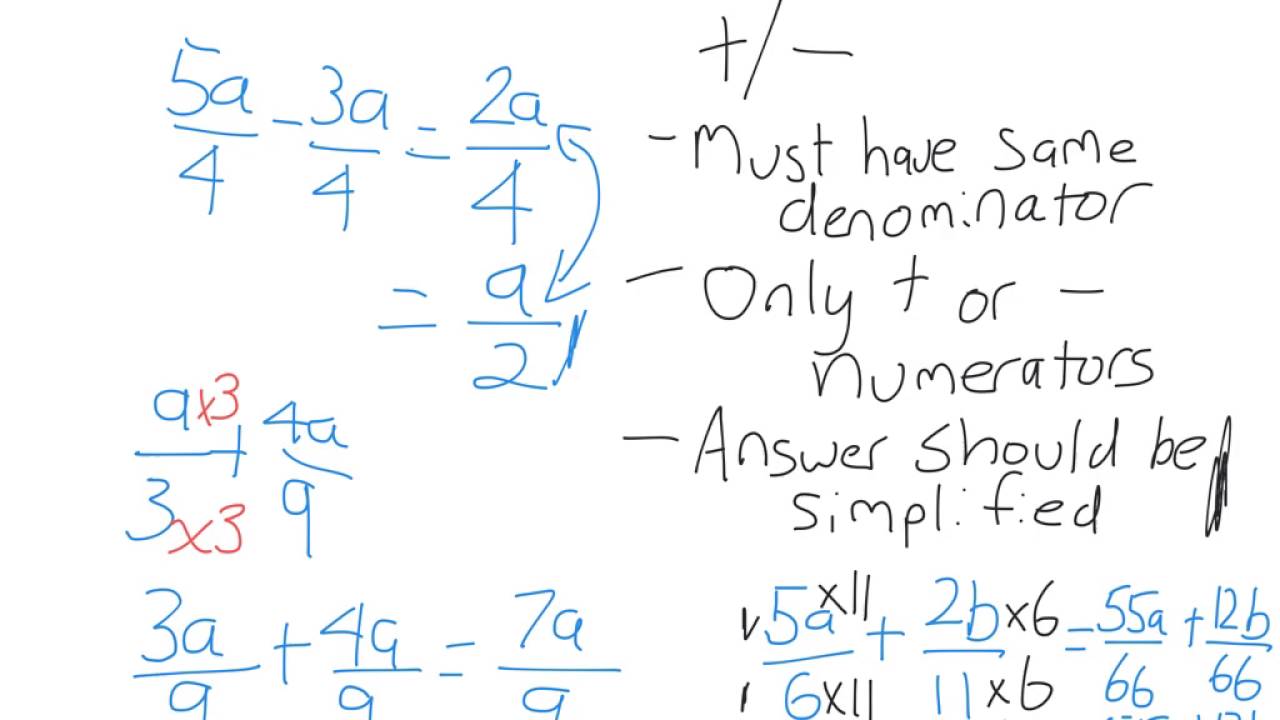 5a/4 - 3a/4 = 2a/4
= a/2
a×3/3×3 + 4a/9
3a/9 + 4a/9 = 7a/9
+/-
- Must have same
denominator
- Only + or -
numerators
- Answer should be
simplified
5a×11/6×11 + 2b×6/11×6 = 55a/66 + 12b/66